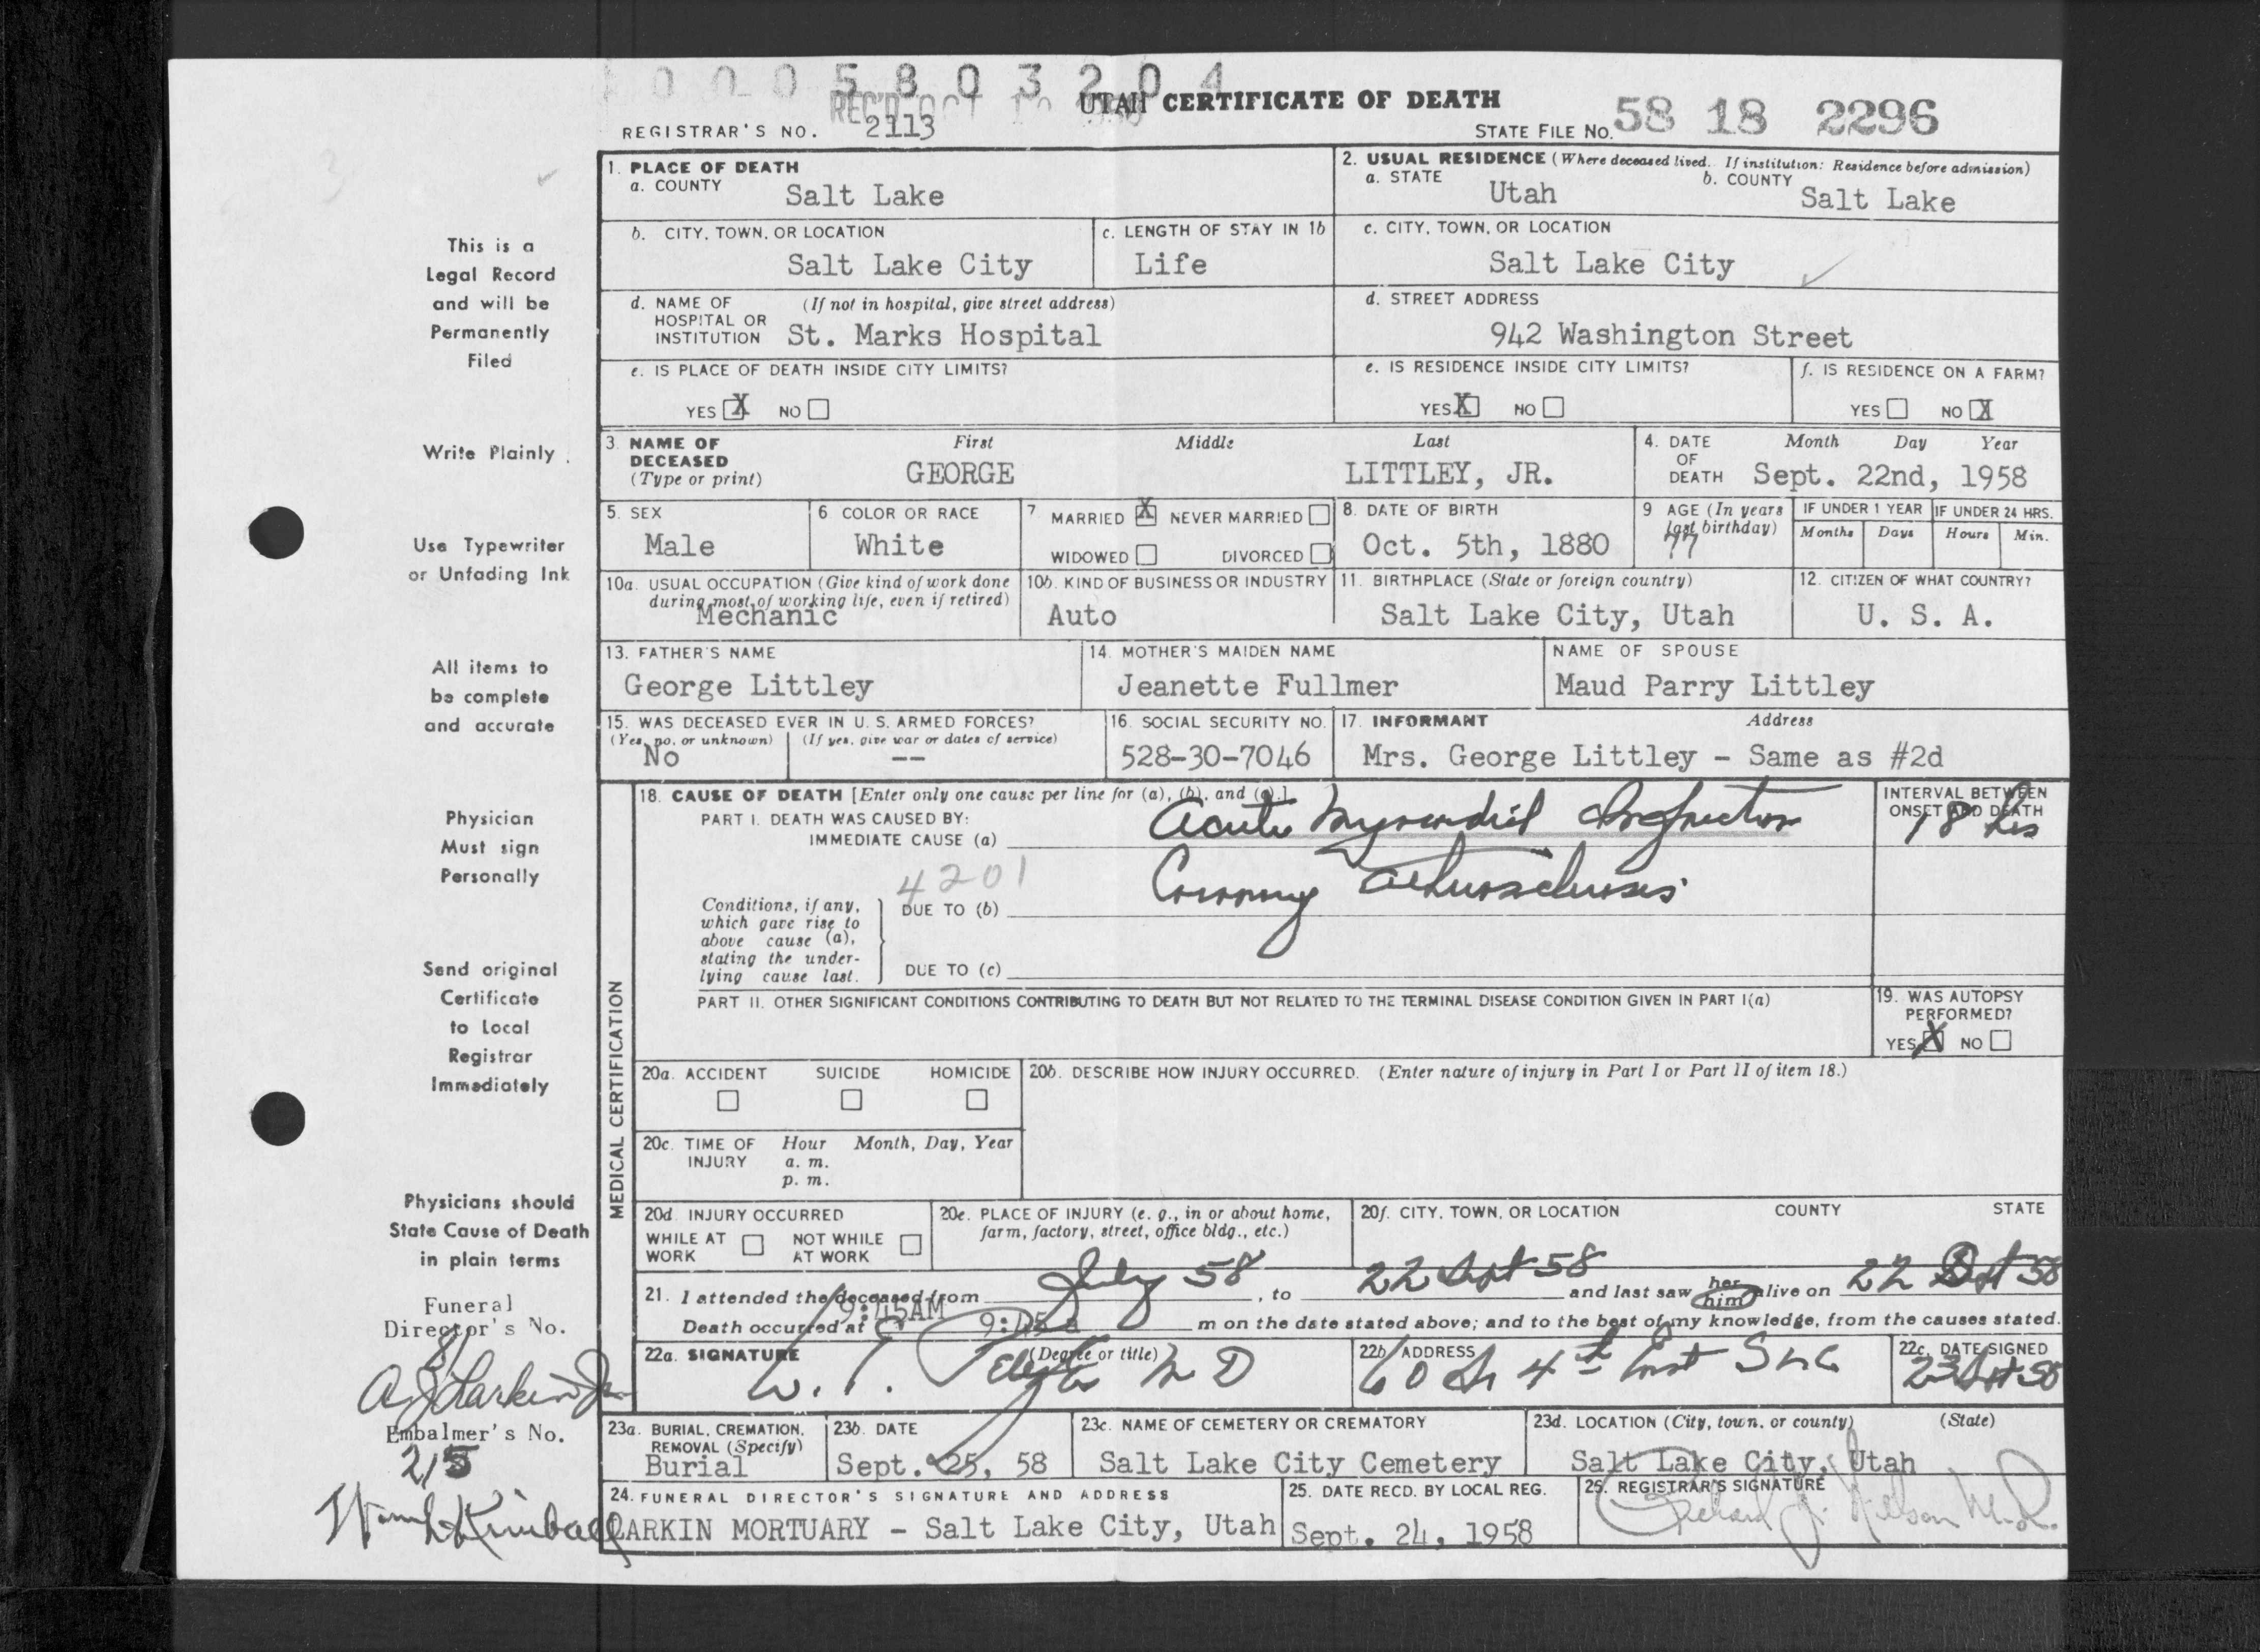 0 0 0 5 8 0 3 2 0 4
REC'D OCT
UTAH CERTIFICATE OF DEATH
REGISTRAR'S NO. 2113
STATE FILE NO. 58 18 2296
1. PLACE OF DEATH
a. COUNTY Salt Lake
2. USUAL RESIDENCE (Where deceased lived. If institution: Residence before admission)
a. STATE Utah b. COUNTY Salt Lake
b. CITY, TOWN, OR LOCATION Salt Lake City
c. LENGTH OF STAY IN 1b Life
c. CITY, TOWN, OR LOCATION Salt Lake City
d. NAME OF HOSPITAL OR INSTITUTION (If not in hospital, give street address) St. Marks Hospital
d. STREET ADDRESS 942 Washington Street
e. IS PLACE OF DEATH INSIDE CITY LIMITS?
YES X NO
e. IS RESIDENCE INSIDE CITY LIMITS?
YES X NO
f. IS RESIDENCE ON A FARM?
YES NO X
3. NAME OF DECEASED (Type or print) First Middle Last
GEORGE LITTLEY, JR.
4. DATE OF DEATH Month Day Year
Sept. 22nd, 1958
5. SEX Male
6 COLOR OR RACE White
7 MARRIED X NEVER MARRIED
WIDOWED DIVORCED
8. DATE OF BIRTH Oct. 5th, 1880
9 AGE (In years last birthday) 77
IF UNDER 1 YEAR Months Days
IF UNDER 24 HRS. Hours Min.
10a. USUAL OCCUPATION (Give kind of work done during most of working life, even if retired) Mechanic
10b. KIND OF BUSINESS OR INDUSTRY Auto
11. BIRTHPLACE (State or foreign country) Salt Lake City, Utah
12. CITIZEN OF WHAT COUNTRY? U. S. A.
13. FATHER'S NAME George Littley
14. MOTHER'S MAIDEN NAME Jeanette Fullmer
NAME OF SPOUSE Maud Parry Littley
15. WAS DECEASED EVER IN U. S. ARMED FORCES?
(Yes, no, or unknown) (If yes, give war or dates of service)
No --
16. SOCIAL SECURITY NO. 528-30-7046
17. INFORMANT Address
Mrs. George Littley - Same as #2d
MEDICAL CERTIFICATION
18. CAUSE OF DEATH [Enter only one cause per line for (a), (b), and (c).]
PART I. DEATH WAS CAUSED BY:
IMMEDIATE CAUSE (a) Acute Myocardial Infarction
INTERVAL BETWEEN ONSET AND DEATH
18 hrs
4201
Conditions, if any, which gave rise to above cause (a), stating the underlying cause last.
DUE TO (b) Coronary Atherosclerosis
DUE TO (c)
PART II. OTHER SIGNIFICANT CONDITIONS CONTRIBUTING TO DEATH BUT NOT RELATED TO THE TERMINAL DISEASE CONDITION GIVEN IN PART I(a)
19. WAS AUTOPSY PERFORMED?
YES X NO
20a. ACCIDENT SUICIDE HOMICIDE
20b. DESCRIBE HOW INJURY OCCURRED. (Enter nature of injury in Part I or Part II of item 18.)
20c. TIME OF INJURY Hour Month, Day, Year
a. m.
p. m.
20d. INJURY OCCURRED
WHILE AT WORK NOT WHILE AT WORK
20e. PLACE OF INJURY (e. g., in or about home, farm, factory, street, office bldg., etc.)
20f. CITY, TOWN, OR LOCATION COUNTY STATE
21. I attended the deceased from July 58, to 22 Sept 58 and last saw her him alive on 22 Sept 58
Death occurred at 9:45AM 9:45 a m on the date stated above; and to the best of my knowledge, from the causes stated.
22a. SIGNATURE (Degree or title) W. T. M D
22b ADDRESS 60 So 4th East SLC
22c. DATE SIGNED 23 Sept 58
23a. BURIAL, CREMATION, REMOVAL (Specify) Burial
23b. DATE Sept. 25, 58
23c. NAME OF CEMETERY OR CREMATORY Salt Lake City Cemetery
23d. LOCATION (City, town, or county) (State) Salt Lake City, Utah
24. FUNERAL DIRECTOR'S SIGNATURE AND ADDRESS
LARKIN MORTUARY - Salt Lake City, Utah
25. DATE RECD. BY LOCAL REG. Sept. 24, 1958
26. REGISTRAR'S SIGNATURE
Nelson M.D.
This is a
Legal Record
and will be
Permanently
Filed
Write Plainly
Use Typewriter
or Unfading Ink
All items to
be complete
and accurate
Physician
Must sign
Personally
Send original
Certificate
to Local
Registrar
Immediately
Physicians should
State Cause of Death
in plain terms
Funeral
Director's No.
81
A J Larkin Jr
Embalmer's No.
215
Kimball